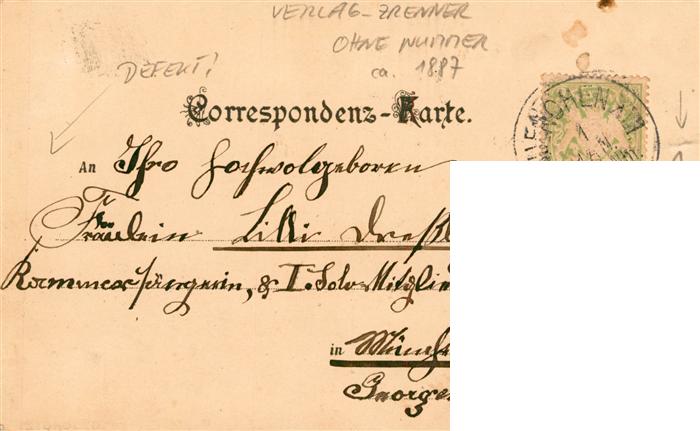 VERLAG-ZRENNER
OHNE NUMMER
ca. 1887
DEFEKT!
Correspondenz-Karte.
MÜNCHEN XIII
An Ihro Hochwolgeboren
Fräulein Lilli Dreßl
Kammersängerin, & I. Solo-Mitglie
in Münche
George